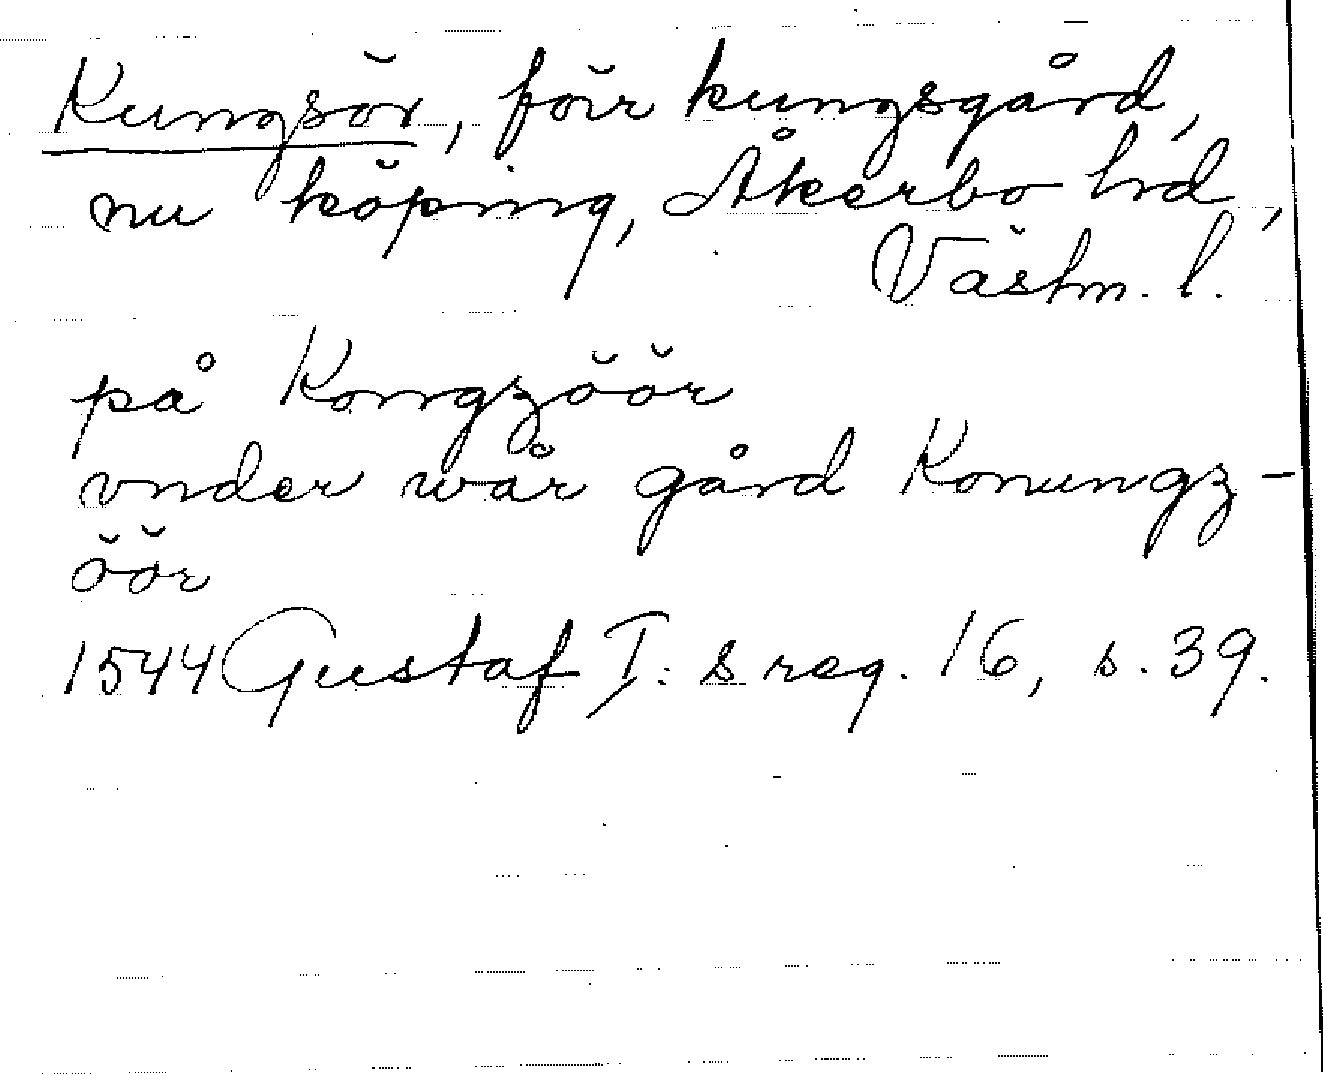 Kungsör, förr kungsgård,
nu köping, Åkerbo hd,
Västm. l.
på Kongzöör
vnder wår gård Konungz-
öör
1544 Gustaf I:s reg. 16, s. 39.